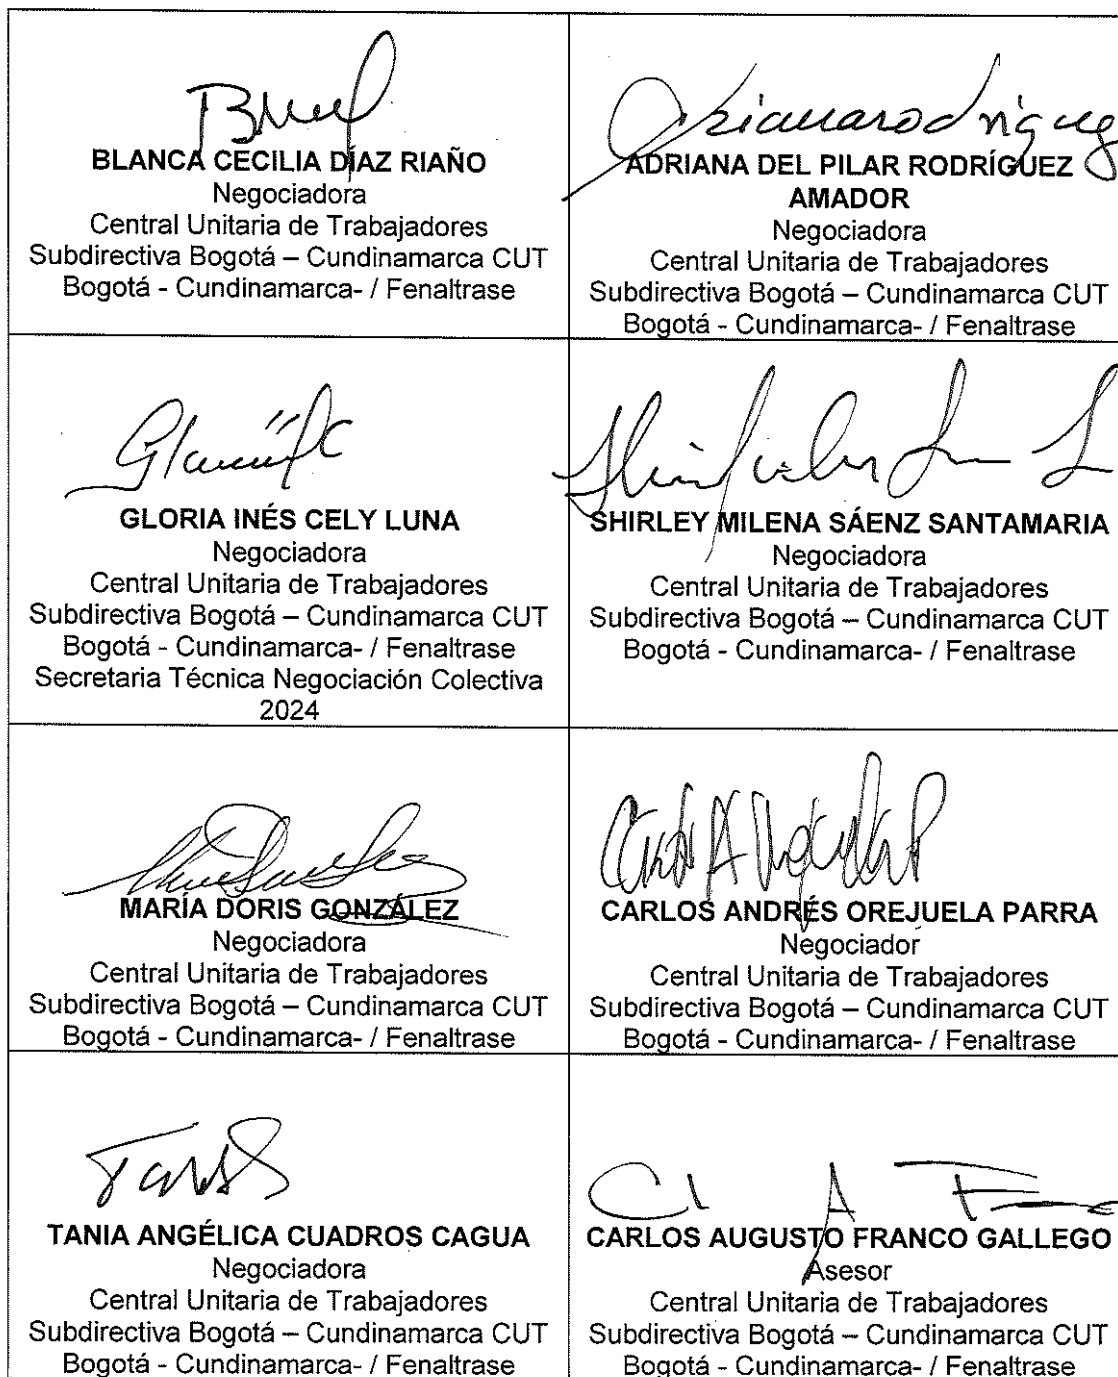 BLANCA CECILIA DÍAZ RIAÑO
Negociadora
Central Unitaria de Trabajadores
Subdirectiva Bogotá – Cundinamarca CUT
Bogotá - Cundinamarca- / Fenaltrase
ADRIANA DEL PILAR RODRÍGUEZ
AMADOR
Negociadora
Central Unitaria de Trabajadores
Subdirectiva Bogotá – Cundinamarca CUT
Bogotá - Cundinamarca- / Fenaltrase
GLORIA INÉS CELY LUNA
Negociadora
Central Unitaria de Trabajadores
Subdirectiva Bogotá – Cundinamarca CUT
Bogotá - Cundinamarca- / Fenaltrase
Secretaria Técnica Negociación Colectiva
2024
SHIRLEY MILENA SÁENZ SANTAMARIA
Negociadora
Central Unitaria de Trabajadores
Subdirectiva Bogotá – Cundinamarca CUT
Bogotá - Cundinamarca- / Fenaltrase
MARÍA DORIS GONZÁLEZ
Negociadora
Central Unitaria de Trabajadores
Subdirectiva Bogotá – Cundinamarca CUT
Bogotá - Cundinamarca- / Fenaltrase
CARLOS ANDRÉS OREJUELA PARRA
Negociador
Central Unitaria de Trabajadores
Subdirectiva Bogotá – Cundinamarca CUT
Bogotá - Cundinamarca- / Fenaltrase
TANIA ANGÉLICA CUADROS CAGUA
Negociadora
Central Unitaria de Trabajadores
Subdirectiva Bogotá – Cundinamarca CUT
Bogotá - Cundinamarca- / Fenaltrase
CARLOS AUGUSTO FRANCO GALLEGO
Asesor
Central Unitaria de Trabajadores
Subdirectiva Bogotá – Cundinamarca CUT
Bogotá - Cundinamarca- / Fenaltrase